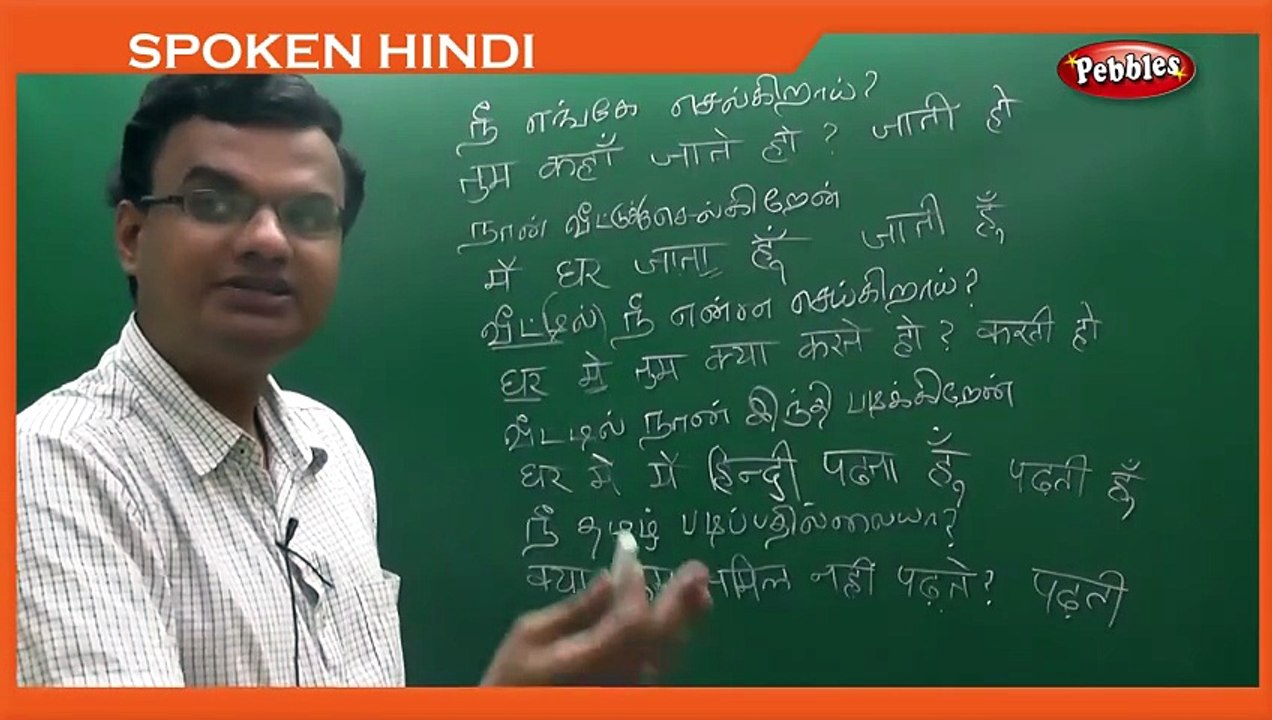 SPOKEN HINDI
Pebbles
நீ எங்கே செல்கிறாய்?
तुम कहाँ जाते हो ? जाती हो
நான் வீட்டுக்கு செல்கிறேன்
मैं घर जाता हूँ जाती हूँ
வீட்டில் நீ என்ன செய்கிறாய்?
घर में तुम क्या करते हो ? करती हो
வீட்டில் நான் இந்தி படிக்கிறேன்
घर में मैं हिन्दी पढता हूँ पढती हूँ
நீ தமிழ் படிப்பதில்லையா?
क्या तमिल नहीं पढ़ते? पढ़ती